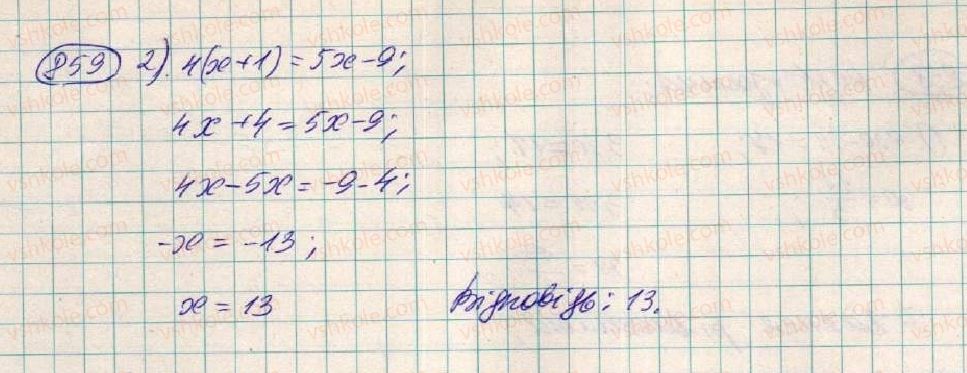 859 2). 4(x+1) = 5x-9;
4x+4 = 5x-9;
4x-5x = -9-4;
-x = -13;
x = 13 Відповідь: 13.